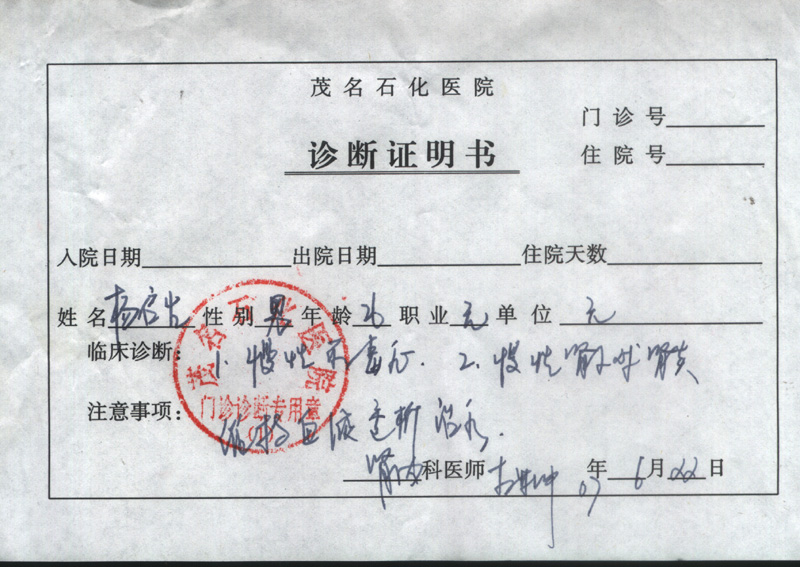 茂名石化医院
门诊号
诊断证明书
住院号
入院日期 出院日期 住院天数
姓名 杨 性别 男 年龄 26 职业 无 单位 无
临床诊断: 1. 慢性尿毒症. 2. 慢性肾小球肾炎
注意事项: 维持血液透析治疗.
肾内科医师 07年6月22日
茂名石化医院
门诊诊断专用章
(1)